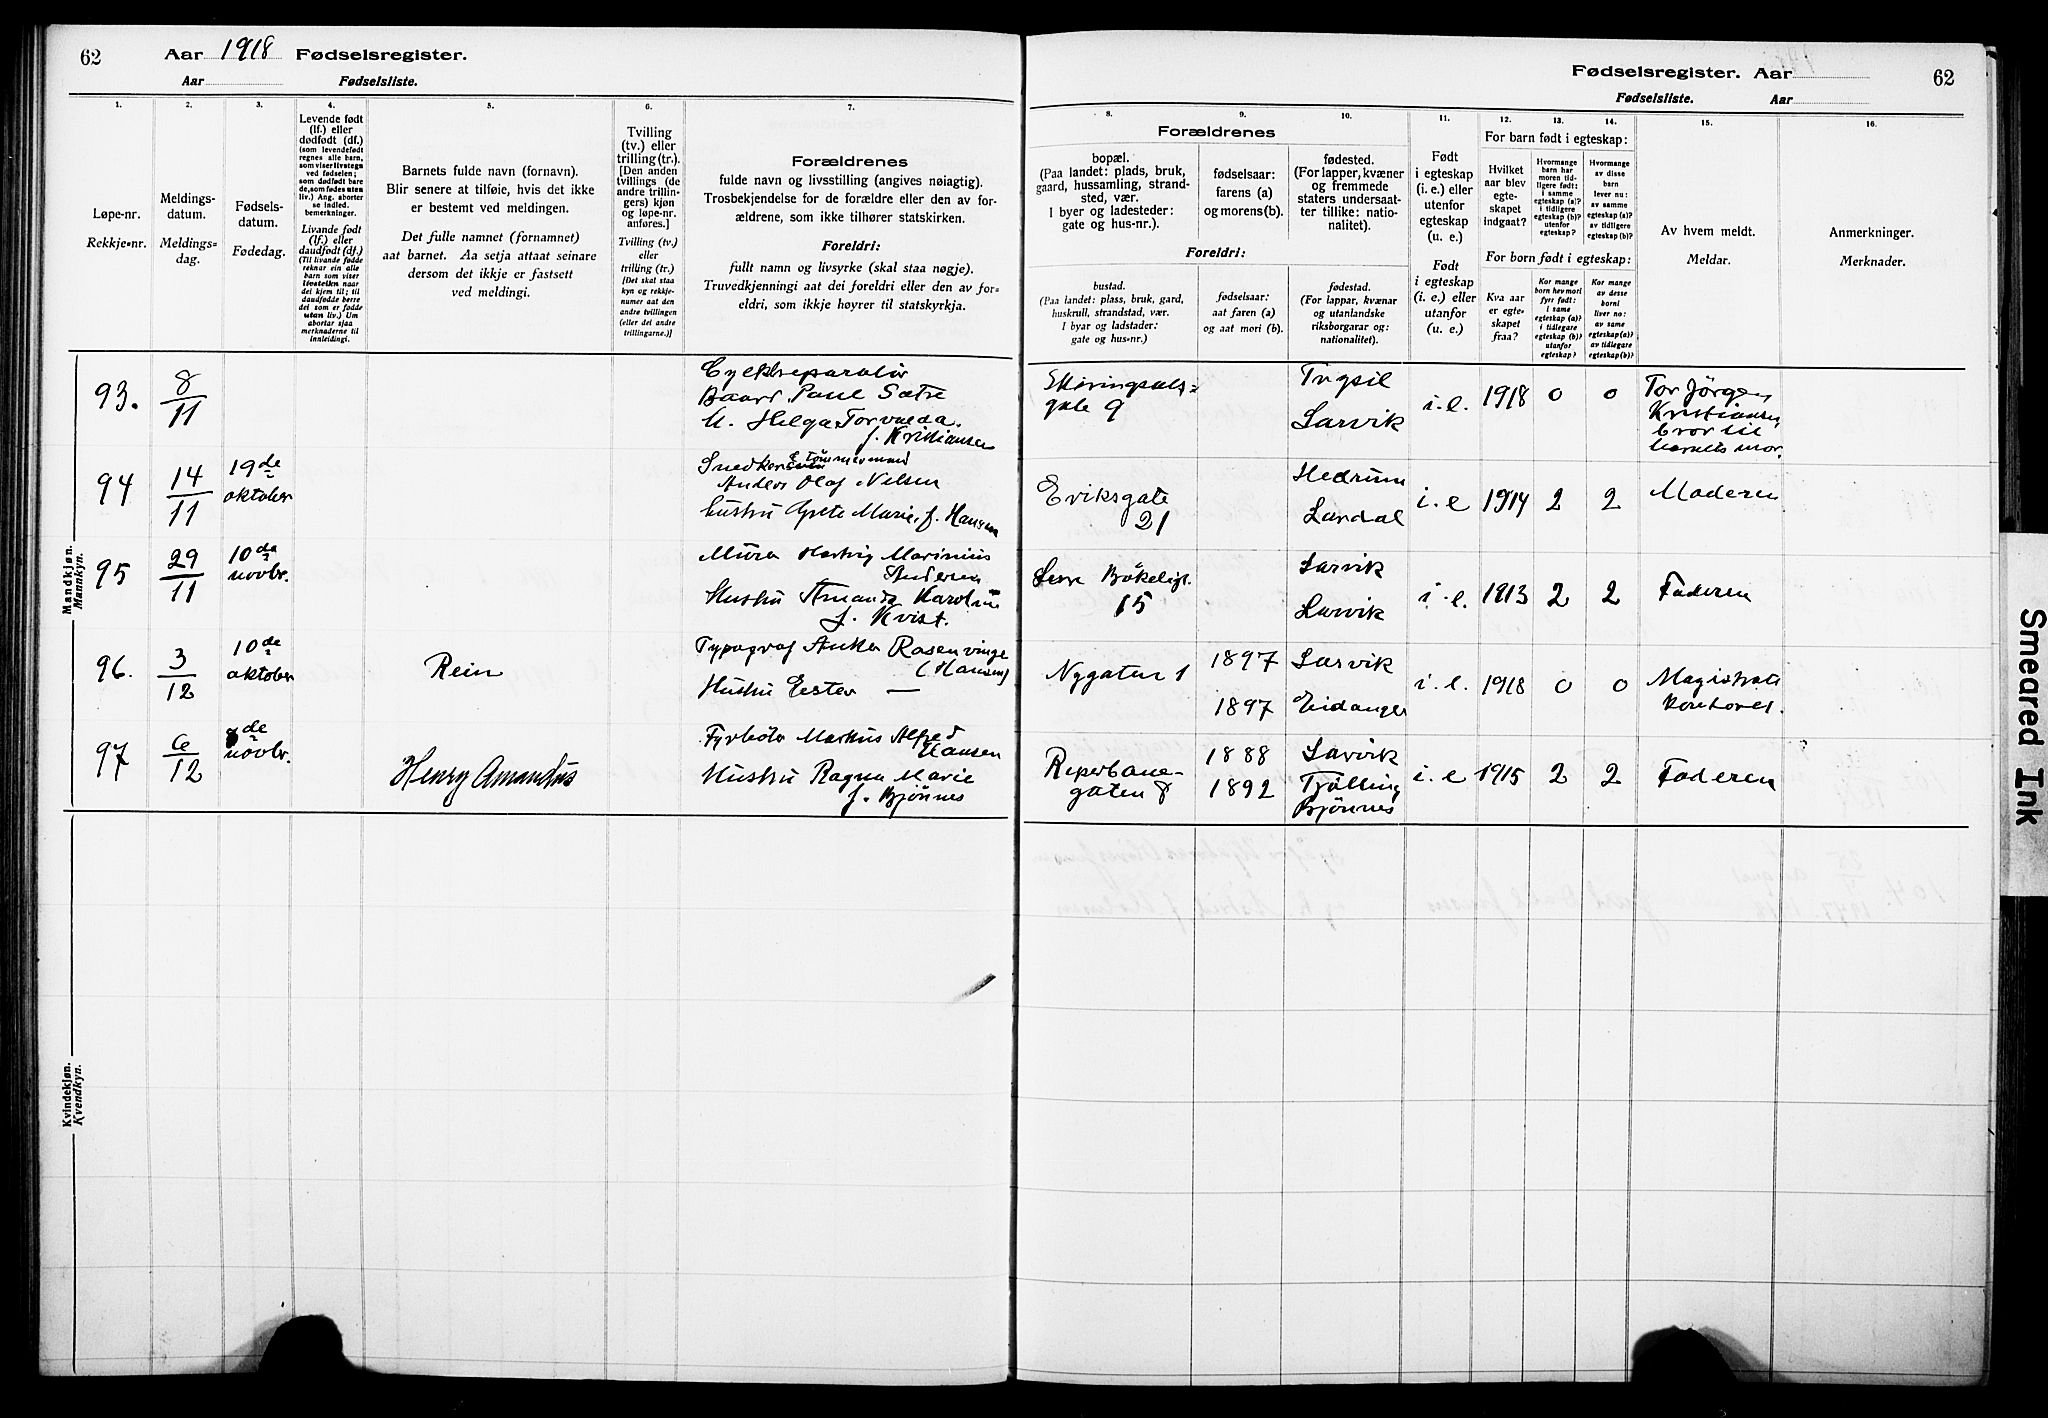 62 Aar 1918 Fødselsregister.
Aar Fødselsliste.
Fødselsregister. Aar 62
Fødselsliste. Aar
1.
Løpe-nr.
Rekkje-nr.
2.
Meldings-
datum.
Meldings-
dag.
3.
Fødsels-
datum.
Fødedag.
4.
Levende født
(lf.) eller
dødfødt (df.)
(som levendefødt
regnes alle barn,
som viser livstegn
ved fødselen;
som dødfødt bare
de, som fødes uten
liv.) Ang. aborter
se indled.
bemerkninger.
Livande født
(lf.) eller
daudfødt (df.)
(Til livande fødde
reknar ein alle
barn som viser
livsteikn naar
dei kjem til; til
daudfødde berre
dei som er fødde
utan liv.) Um
abortar sjaa
merknaderne til
innleidingi.
5.
Barnets fulde navn (fornavn).
Blir senere at tilføie, hvis det ikke
er bestemt ved meldingen.
Det fulle namnet (fornamnet)
aat barnet. Aa setja attaat seinare
dersom det ikkje er fastsett
ved meldingi.
6.
Tvilling
(tv.) eller
trilling (tr.).
[Den anden
tvillings (de
andre trillin-
gers) kjøn
og løpe-nr.
anføres.]
Tvilling (tv.)
eller
trilling (tr.)
[Det skal staa
kyn og rekkje-
numer aat den
andre tvillingen
(eller dei andre
trillingarne.)]
7.
Forældrenes
fulde navn og livsstilling (angives nøiagtig).
Trosbekjendelse for de forældre eller den av for-
ældrene, som ikke tilhører statskirken.
Foreldri:
fullt namn og livsyrke (skal staa nøgje).
Truvedkjenningi aat dei foreldri eller den av for-
eldri, som ikkje høyrer til statskyrkja.
8.
Forældrenes
bopæl.
(Paa landet: plads, bruk,
gaard, hussamling, strand-
sted, vær.
I byer og ladesteder:
gate og hus-nr.).
Foreldri:
bustad.
(Paa landet: plass, bruk, gard,
huskrull, strandstad, vær.
I byar og ladstader:
gate og hus-nr.)
9.
fødselsaar:
farens (a)
og morens (b).
fødselsaar:
aat faren (a)
og aat mori (b).
10.
fødested.
(For lapper, kvæner
og fremmede
staters undersaat-
ter tillike: natio-
nalitet).
fødestad.
(For lappar, kvænar
og utanlandske
riksborgarar og:
nationalitet).
11.
Født
i egteskap
(i. e.) eller
utenfor
egteskap
(u. e.)
Født
i egteskap
(i. e.) eller
utanfor
(u. e.)
12.
For barn født i egteskap:
Hvilket
aar blev
egte-
skapet
indgaat?
For born født i egteskap:
Kva aar
er egte-
skapet
fraa?
13.
Hvormange
barn har
moren tid-
ligere født:
i samme
egteskap (a)?
i tidligere
egteskap (b)?
utenfor
egteskap?
Kor mange
born hev mori
fyrr født:
i same
egteskap (a)?
i tidlegare
egteskap (b)?
utanfor
egteskap?
14.
Hvormange
av disse
barn
lever nu:
av samme
egteskap (a)?
av tidligere
egteskap (b)?
Kor mange
av desse
borni
liver no:
av same
egteskap (a)?
av tidlegare
egteskap (b)?
15.
Av hvem meldt.
Meldar.
16.
Anmerkninger.
Merknader.
Mandkjøn.
Mannkyn.
93. 8/11
Cyklreparatør
Baard Paul Sætre
H. Helga Torvalda
f. Kristiansen
Skiringsals-
gate 9
Trysil
Larvik
i. e. 1918 0 0
Tor Jörgen
Kristiansen
bror til
barnets mor.
94 14/11 19de oktober
Snedker & tømmermand
Anders Olaf Nilsen
hustru Grete Marie, f. Hansen
Eriksgate
21
Hedrum
Lardal
i. e 1914 2 2 Moderen
95 29/11 10de novbr.
Murer Hartvig Marinius
Andersen
Hustru Amanda Karoline
f. Kvist.
Bøkeligt.
15
Larvik
Larvik
i. e. 1913 2 2 Faderen
96. 3/12 10de oktober Rein
Typograf Anker Rosenvinge
(Hansen)
Hustru Ester —
Nygaten 1
1897 Larvik
1897 Eidanger
i. e. 1918 0 0
Magistrats
kontoret.
97 6/12 8de novbr. Henry Amandus
Fyrbøter Markus Alfred
Hansen
Hustru Ragna Marie
f. Bjønnes
Reperbane-
gaten 8
1888 Larvik
1892 Tjølling
Bjønnes
i. e 1915 2 2 Faderen
Kvindekjøn.
Kvendkyn.
Smeared Ink